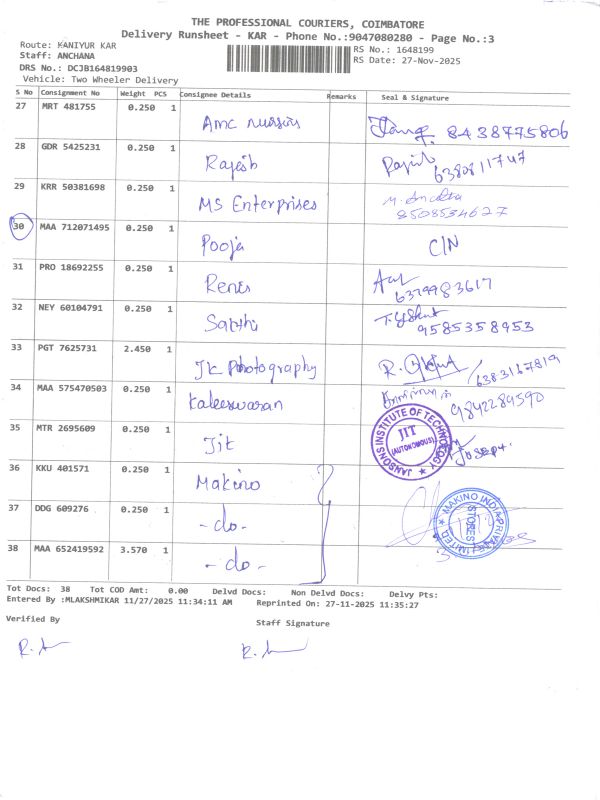 THE PROFESSIONAL COURIERS, COIMBATORE
Delivery Runsheet - KAR - Phone No.:9047080280 - Page No.:3
Route: KANIYUR KAR
RS No.: 1648199
Staff: ANCHANA
RS Date: 27-Nov-2025
DRS No.: DCJB164819903
Vehicle: Two Wheeler Delivery
S No Consignment No Weight PCS Consignee Details Remarks Seal & Signature
27 MRT 481755 0.250 1 Amc 8438775806
28 GDR 5425231 0.250 1 Rajesh 6380811747
29 KRR 50381698 0.250 1 MS Enterprises 8508534627
30 MAA 712071495 0.250 1 Pooja C/N
31 PRO 18692255 0.250 1 6379983617
32 NEY 60104791 0.250 1 Sakthi 9585358953
33 PGT 7625731 2.450 1 JK Photography 6383167819
34 MAA 575470503 0.250 1 Kaleeswaran 9842289590
35 MTR 2695609 0.250 1 Jit JANSONS INSTITUTE OF TECHNOLOGY JIT (AUTONOMOUS)
36 KKU 401571 0.250 1 Makino
37 DDG 609276 0.250 1 -do- MAKINO INDIA PRIVATE LIMITED STORES
38 MAA 652419592 3.570 1 -do-
Tot Docs: 38 Tot COD Amt: 0.00 Delvd Docs: Non Delvd Docs: Delvy Pts:
Entered By :MLAKSHMIKAR 11/27/2025 11:34:11 AM Reprinted On: 27-11-2025 11:35:27
Verified By
Staff Signature